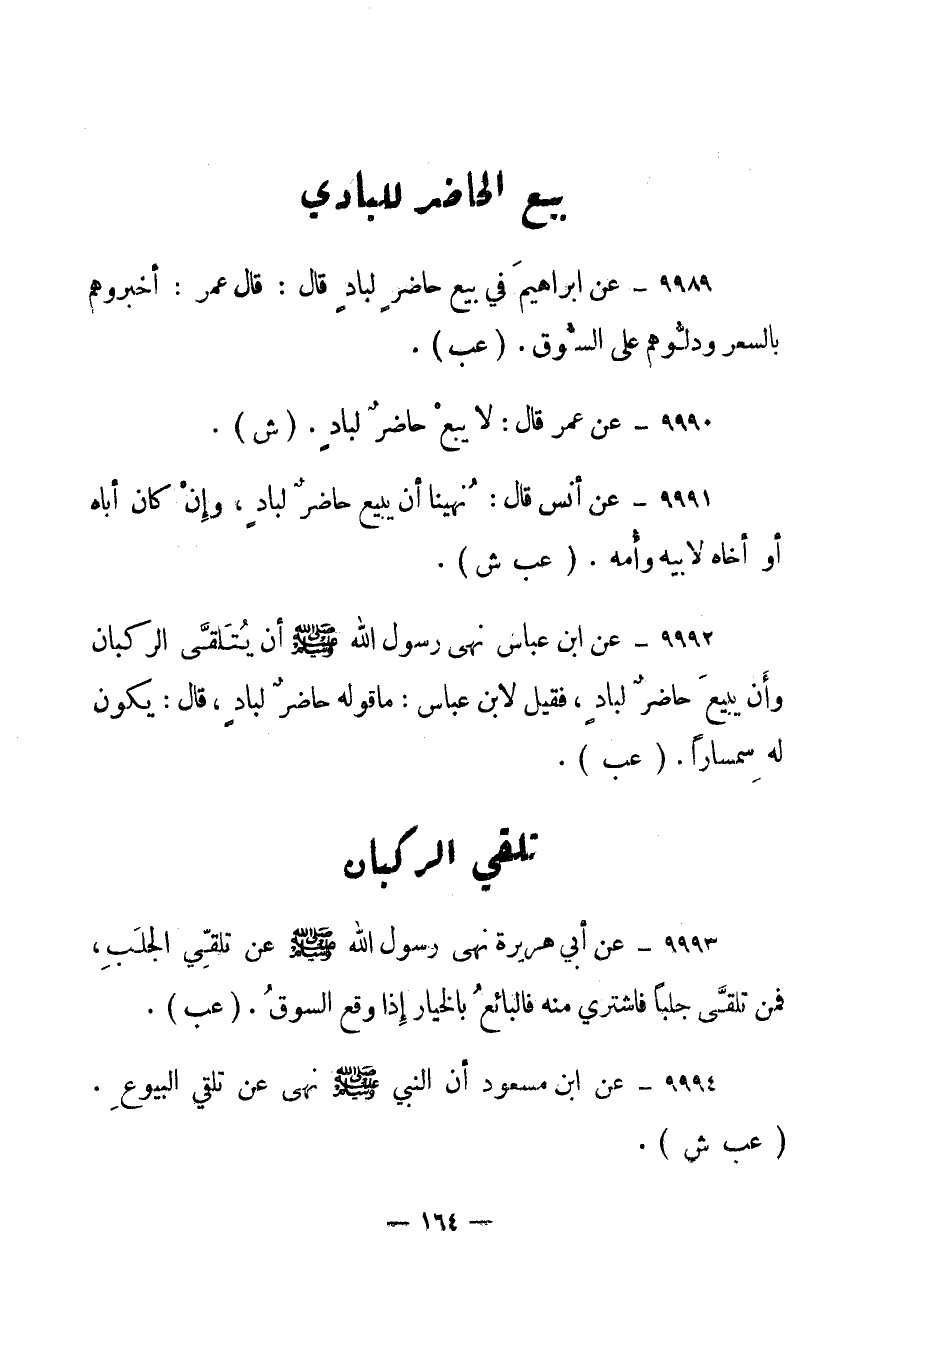 بيع الحاضر للبادي
٩٩٨٩ ـ عن ابراهيمَ في بيع حاضرٍ لبادٍ قال : قال عمر : أخبروهم
بالسعر ودلُّوهم على السُّوق . ( عب ) .
٩٩٩٠ ـ عن عمر قال : لا يبعْ حاضرٌ لبادٍ . ( ش ) .
٩٩٩١ ـ عن أنس قال : نُهينا أن يبيع حاضرٌ لبادٍ ، وإنْ كان أباه
أو أخاه لابيه وأُمه . ( عب ش ) .
٩٩٩٢ ـ عن ابن عباس نهى رسول الله ﷺ أن يُتَلقَّى الركبان
وأَن يبيعَ حاضرٌ لبادٍ ، فقيل لابن عباس : ماقوله حاضرٌ لبادٍ ، قال : يكون
له سِمساراً . ( عب ) .
تلقي الركبان
٩٩٩٣ ـ عن أبي هريرة نهى رسول الله ﷺ عن تلقِّي الجلَبِ ،
فمن تلقَّى جلباً فاشتري منه فالبائعُ بالخيار إذا وقع السوقُ . ( عب ) .
٩٩٩٤ ـ عن ابن مسعود أن النبي ﷺ نهى عن تلقي البيوعِ .
( عب ش ) .
— ١٦٤ —